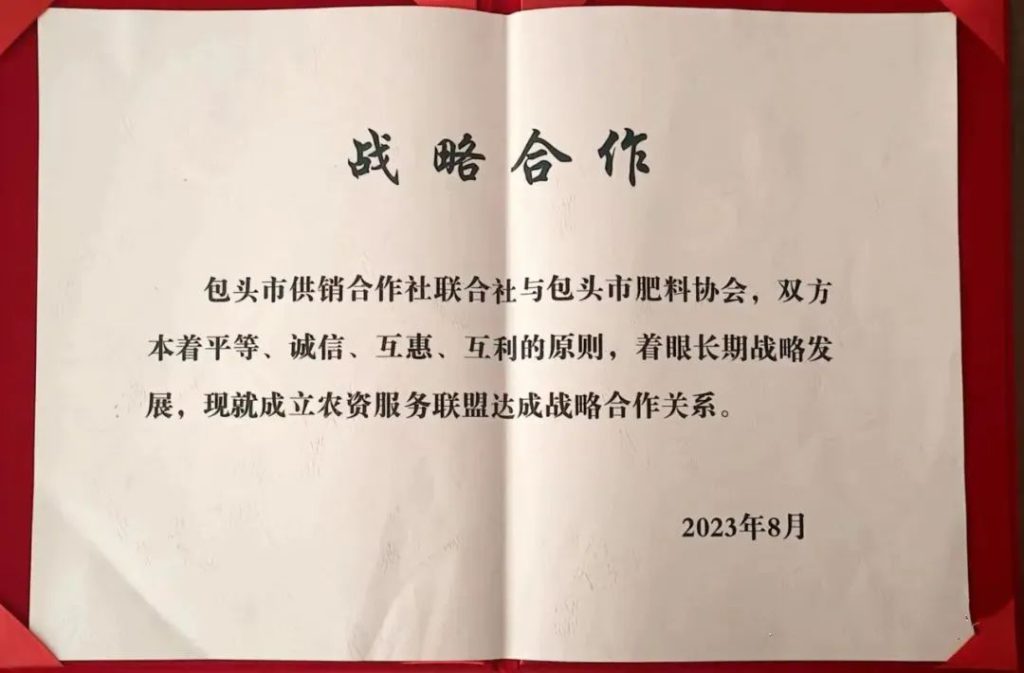 战略合作
包头市供销合作社联合社与包头市肥料协会，双方
本着平等、诚信、互惠、互利的原则，着眼长期战略发
展，现就成立农资服务联盟达成战略合作关系。
2023年8月